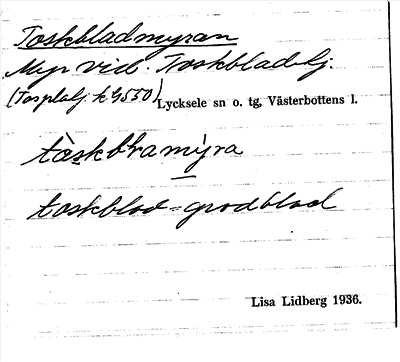 Toskbladmyran
Myr vid. Toskbladbj.
(Torplabj. k G550) Lycksele sn o. tg, Västerbottens l.
tàskbɫramy̍ra
toskblad = grodblad
Lisa Lidberg 1936.